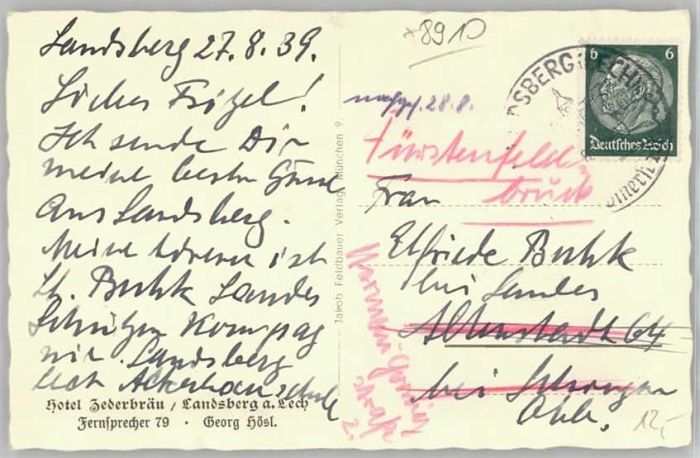 Landsberg 27.8.39.
Liebes Frizel!
Ich sende Dir
meine besten Grüsse
aus Landsberg.
Meine Adresse ist
Lt. Buhk Landes
Schützen Kompag
nie. Landsberg
Lech
Hotel Zederbräu / Landsberg a. Lech
Fernsprecher 79 · Georg Hösl.
Jakob Feldbauer Verlag, München 9
8910
nachges. 28.8.
Fürstenfeld-
bruck
Frau
Elfriede Buhk
bei Landes
Altenstadt 64
bei Schongau
Obb.
Hermann-Göring
strasse
2.
12,-
6 6
Deutsches Reich
LANDSBERG (LECH)